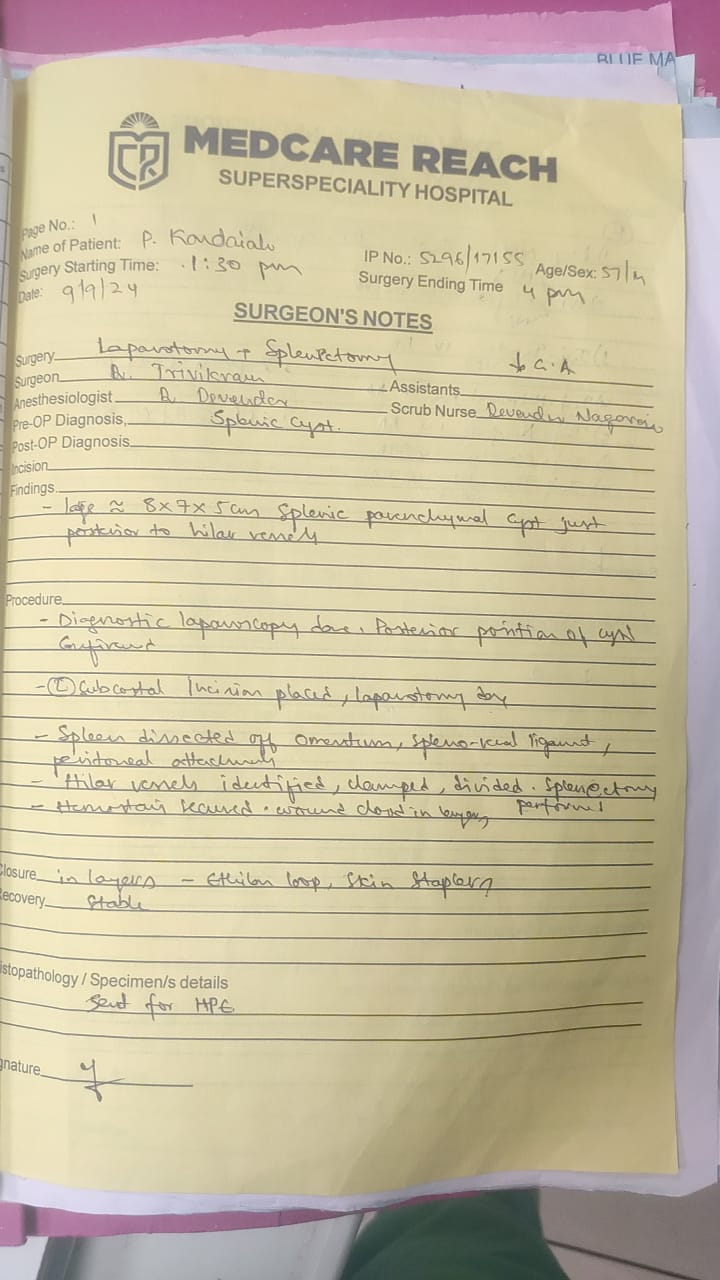 BLUE MA
MEDCARE REACH
SUPERSPECIALITY HOSPITAL
Page No.: 1
Name of Patient: P. Kandaiah
IP No.: 5296/17155 Age/Sex: 57/M
Surgery Starting Time: 1:30 pm
Surgery Ending Time 4 pm
Date: 9/9/24
SURGEON'S NOTES
Surgery Laparotomy + Splenectomy G.A
Surgeon Dr. Trivikram Assistants
Anesthesiologist Dr. Devender Scrub Nurse Devender
Pre-OP Diagnosis, Splenic Cyst.
Post-OP Diagnosis
Incision
Findings
- large ≈ 8x7x5cm Splenic parenchymal cyst just
posterior to hilar vessels
Procedure
- Diagnostic laparoscopy done. Posterior position of cyst
Confirmed
- (L) Subcostal Incision placed, laparotomy done
- Spleen dissected off omentum, spleno-renal ligament,
peritoneal attachments
- Hilar vessels identified, clamped, divided. Splenectomy
performed
- Hemostasis secured. wound closed in layers
Closure in layers - Ethilon loop, Skin Staplers
Recovery Stable
istopathology / Specimen/s details
Sent for HPE
gnature